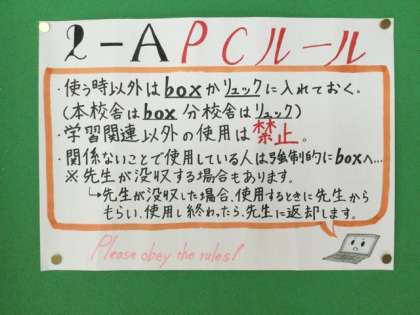 2-A PCルール
・使う時以外はboxかリュックに入れておく。
(本校舎はbox 分校舎はリュック)
・学習関連以外の使用は禁止。
・関係ないことで使用している人は強制的にboxへ…
※先生が没収する場合もあります。
↳先生が没収した場合、使用するときに先生から
もらい、使用し終わったら、先生に返却します。
Please obey the rules!